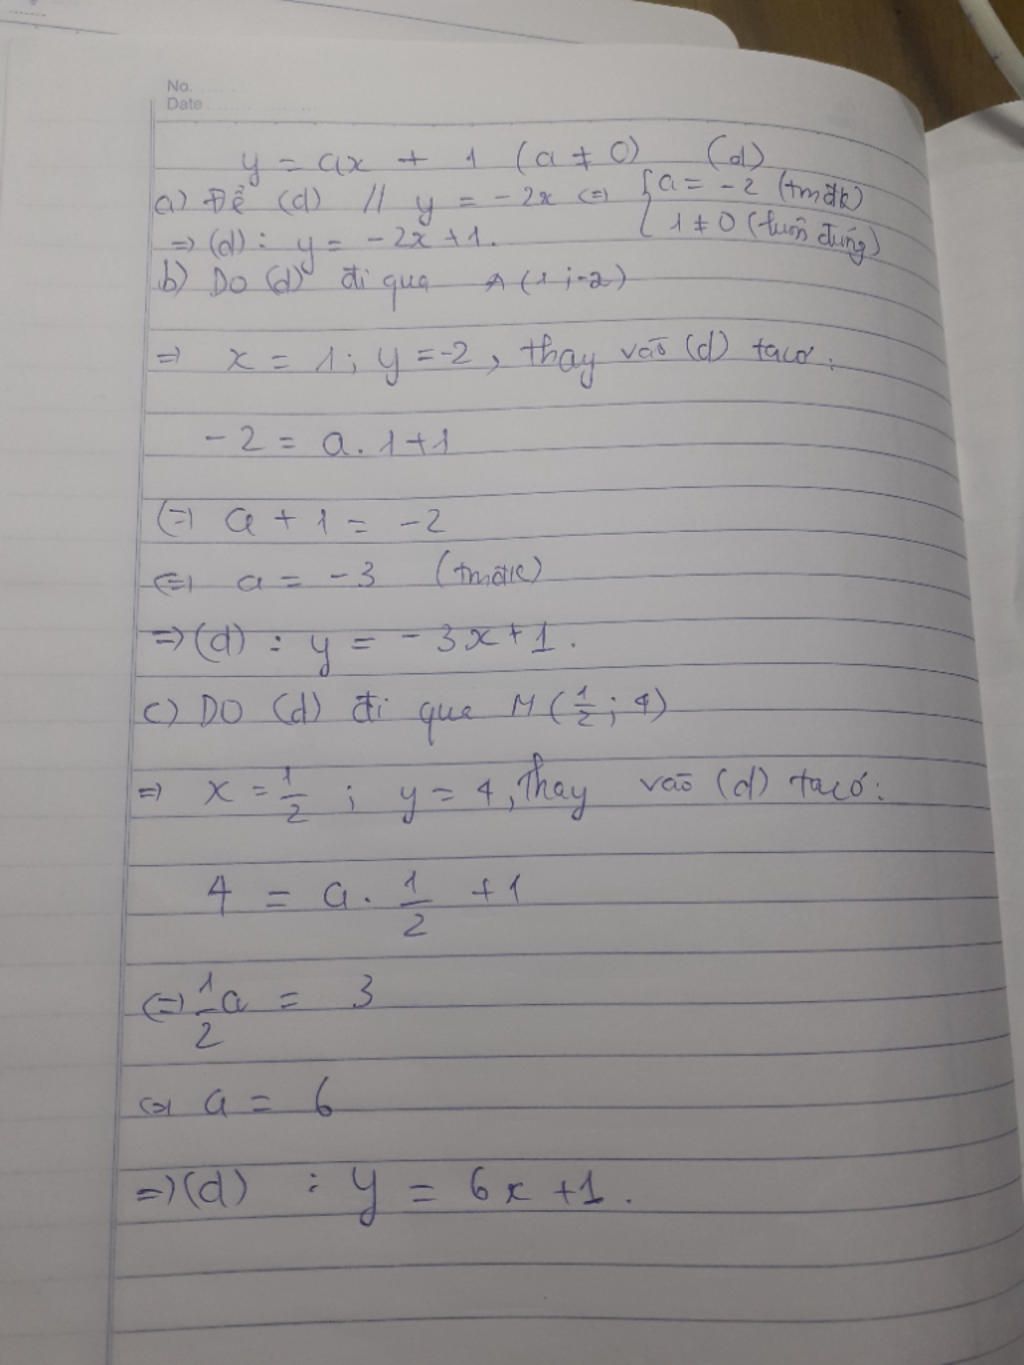 No.
Date
y = ax + 1 (a ≠ 0) (d)
a) Để (d) // y = -2x (=) { a = -2 (tmđk)
1 ≠ 0 (luôn đúng)
=> (d) : y = -2x + 1.
b) DO (d) đi qua A (1 ; -2)
=> x = 1 ; y = -2 , thay vào (d) ta có :
-2 = a . 1 + 1
(=) a + 1 = -2
(=) a = -3 (tmđk)
=> (d) : y = -3x + 1 .
c) DO (d) đi qua M ( 1/2 ; 4 )
=> x = 1/2 ; y = 4 , Thay vào (d) ta có :
4 = a . 1/2 + 1
(=) 1/2 a = 3
(=) a = 6
=> (d) : y = 6x + 1 .